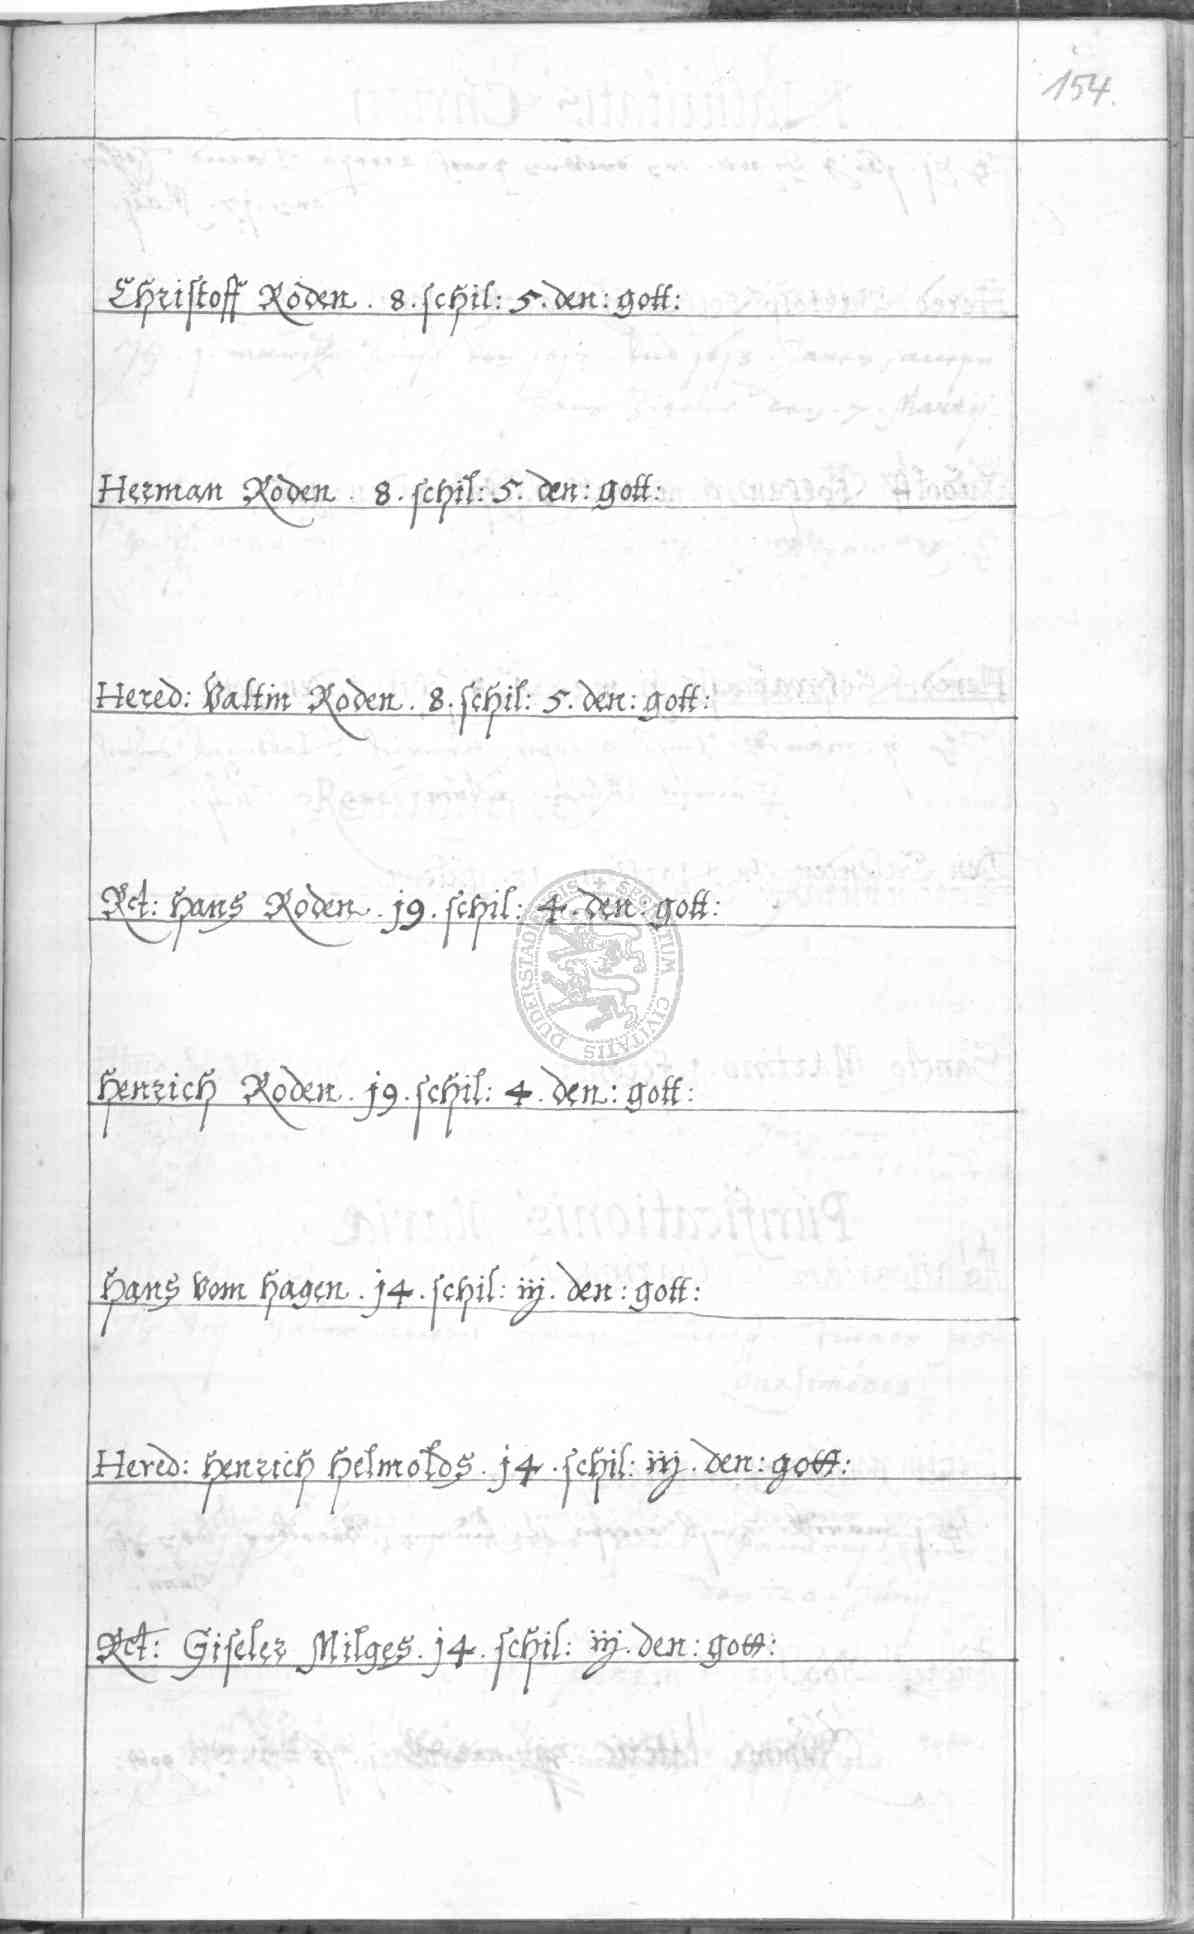 154.
Christoff Roden . 8 . schil: 5 . den : gott:
Herman Roden . 8 . schil: 5 . den : gott:
Hered: Valtin Roden . 8 . schil: 5 . den : gott:
Rct: Hans Roden . j9 . schil: 4 . den : gott:
Henrich Roden . j9 . schil: 4 . den : gott:
Hans vom Hagen . j4 . schil: iij . den : gott:
Hered: Henrich Helmolds . j4 . schil: iij . den : gott:
Rct: Giseler Milges . j4 . schil: iij . den : gott:
SECRETUM CIVITATIS DUDERSTADIENSIS